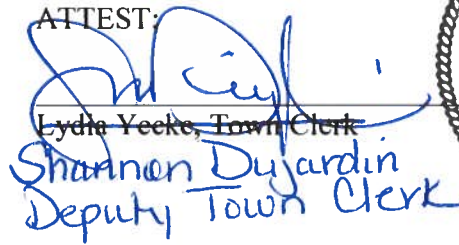 ATTEST:
Lydia Yecke, Town Clerk
Shannon Dujardin
Deputy Town Clerk